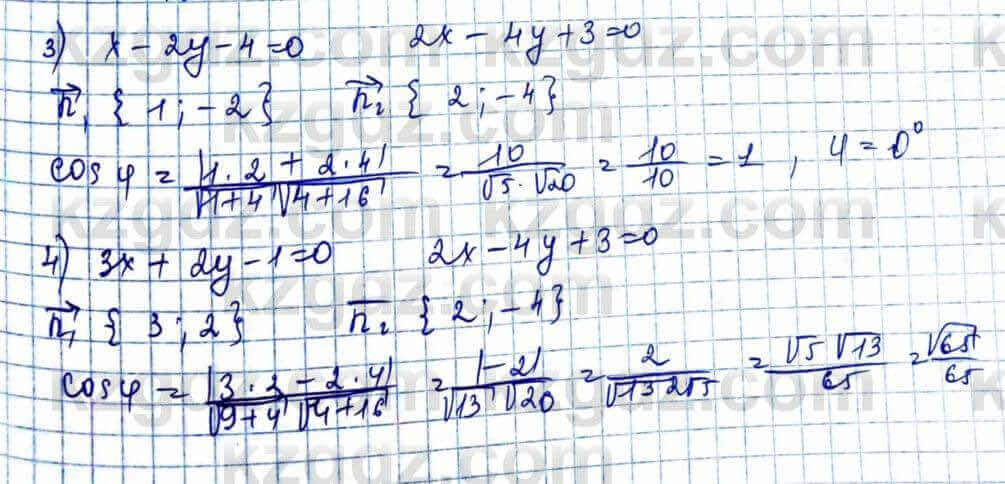 3) x − 2y − 4 = 0    2x − 4y + 3 = 0
n⃗₁ {1; −2}    n⃗₂ {2; −4}
cos φ = |1·2 + 2·4| / √1+4 √4+16 = 10 / √5·√20 = 10/10 = 1, φ = 0°
4) 3x + 2y − 1 = 0    2x − 4y + 3 = 0
n⃗₁ {3; 2}    n⃗₂ {2; −4}
cos φ = |3·2 − 2·4| / √9+4 √4+16 = |−2| / √13 √20 = 2 / √13 2√5 = √5 √13 / 65 = √65 / 65
kzgdz.com